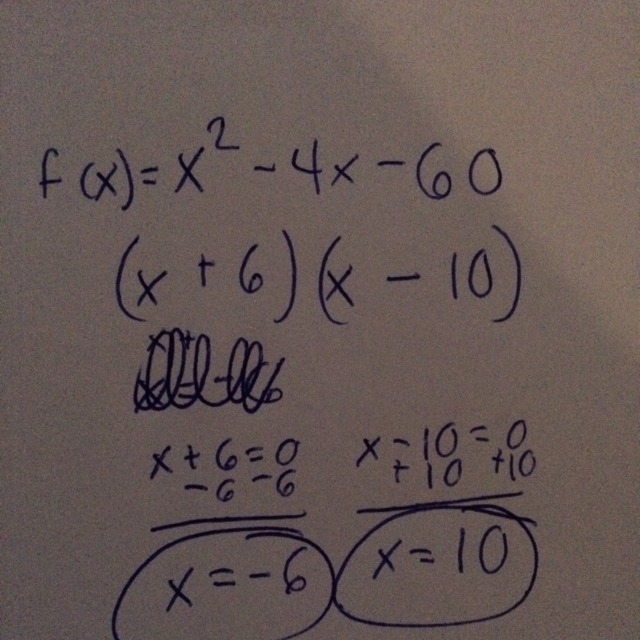 f(x)=x² -4x-60
(x + 6)(x - 10)
x+6=0 x-10=0
-6 -6 +10 +10
x=-6 x=10